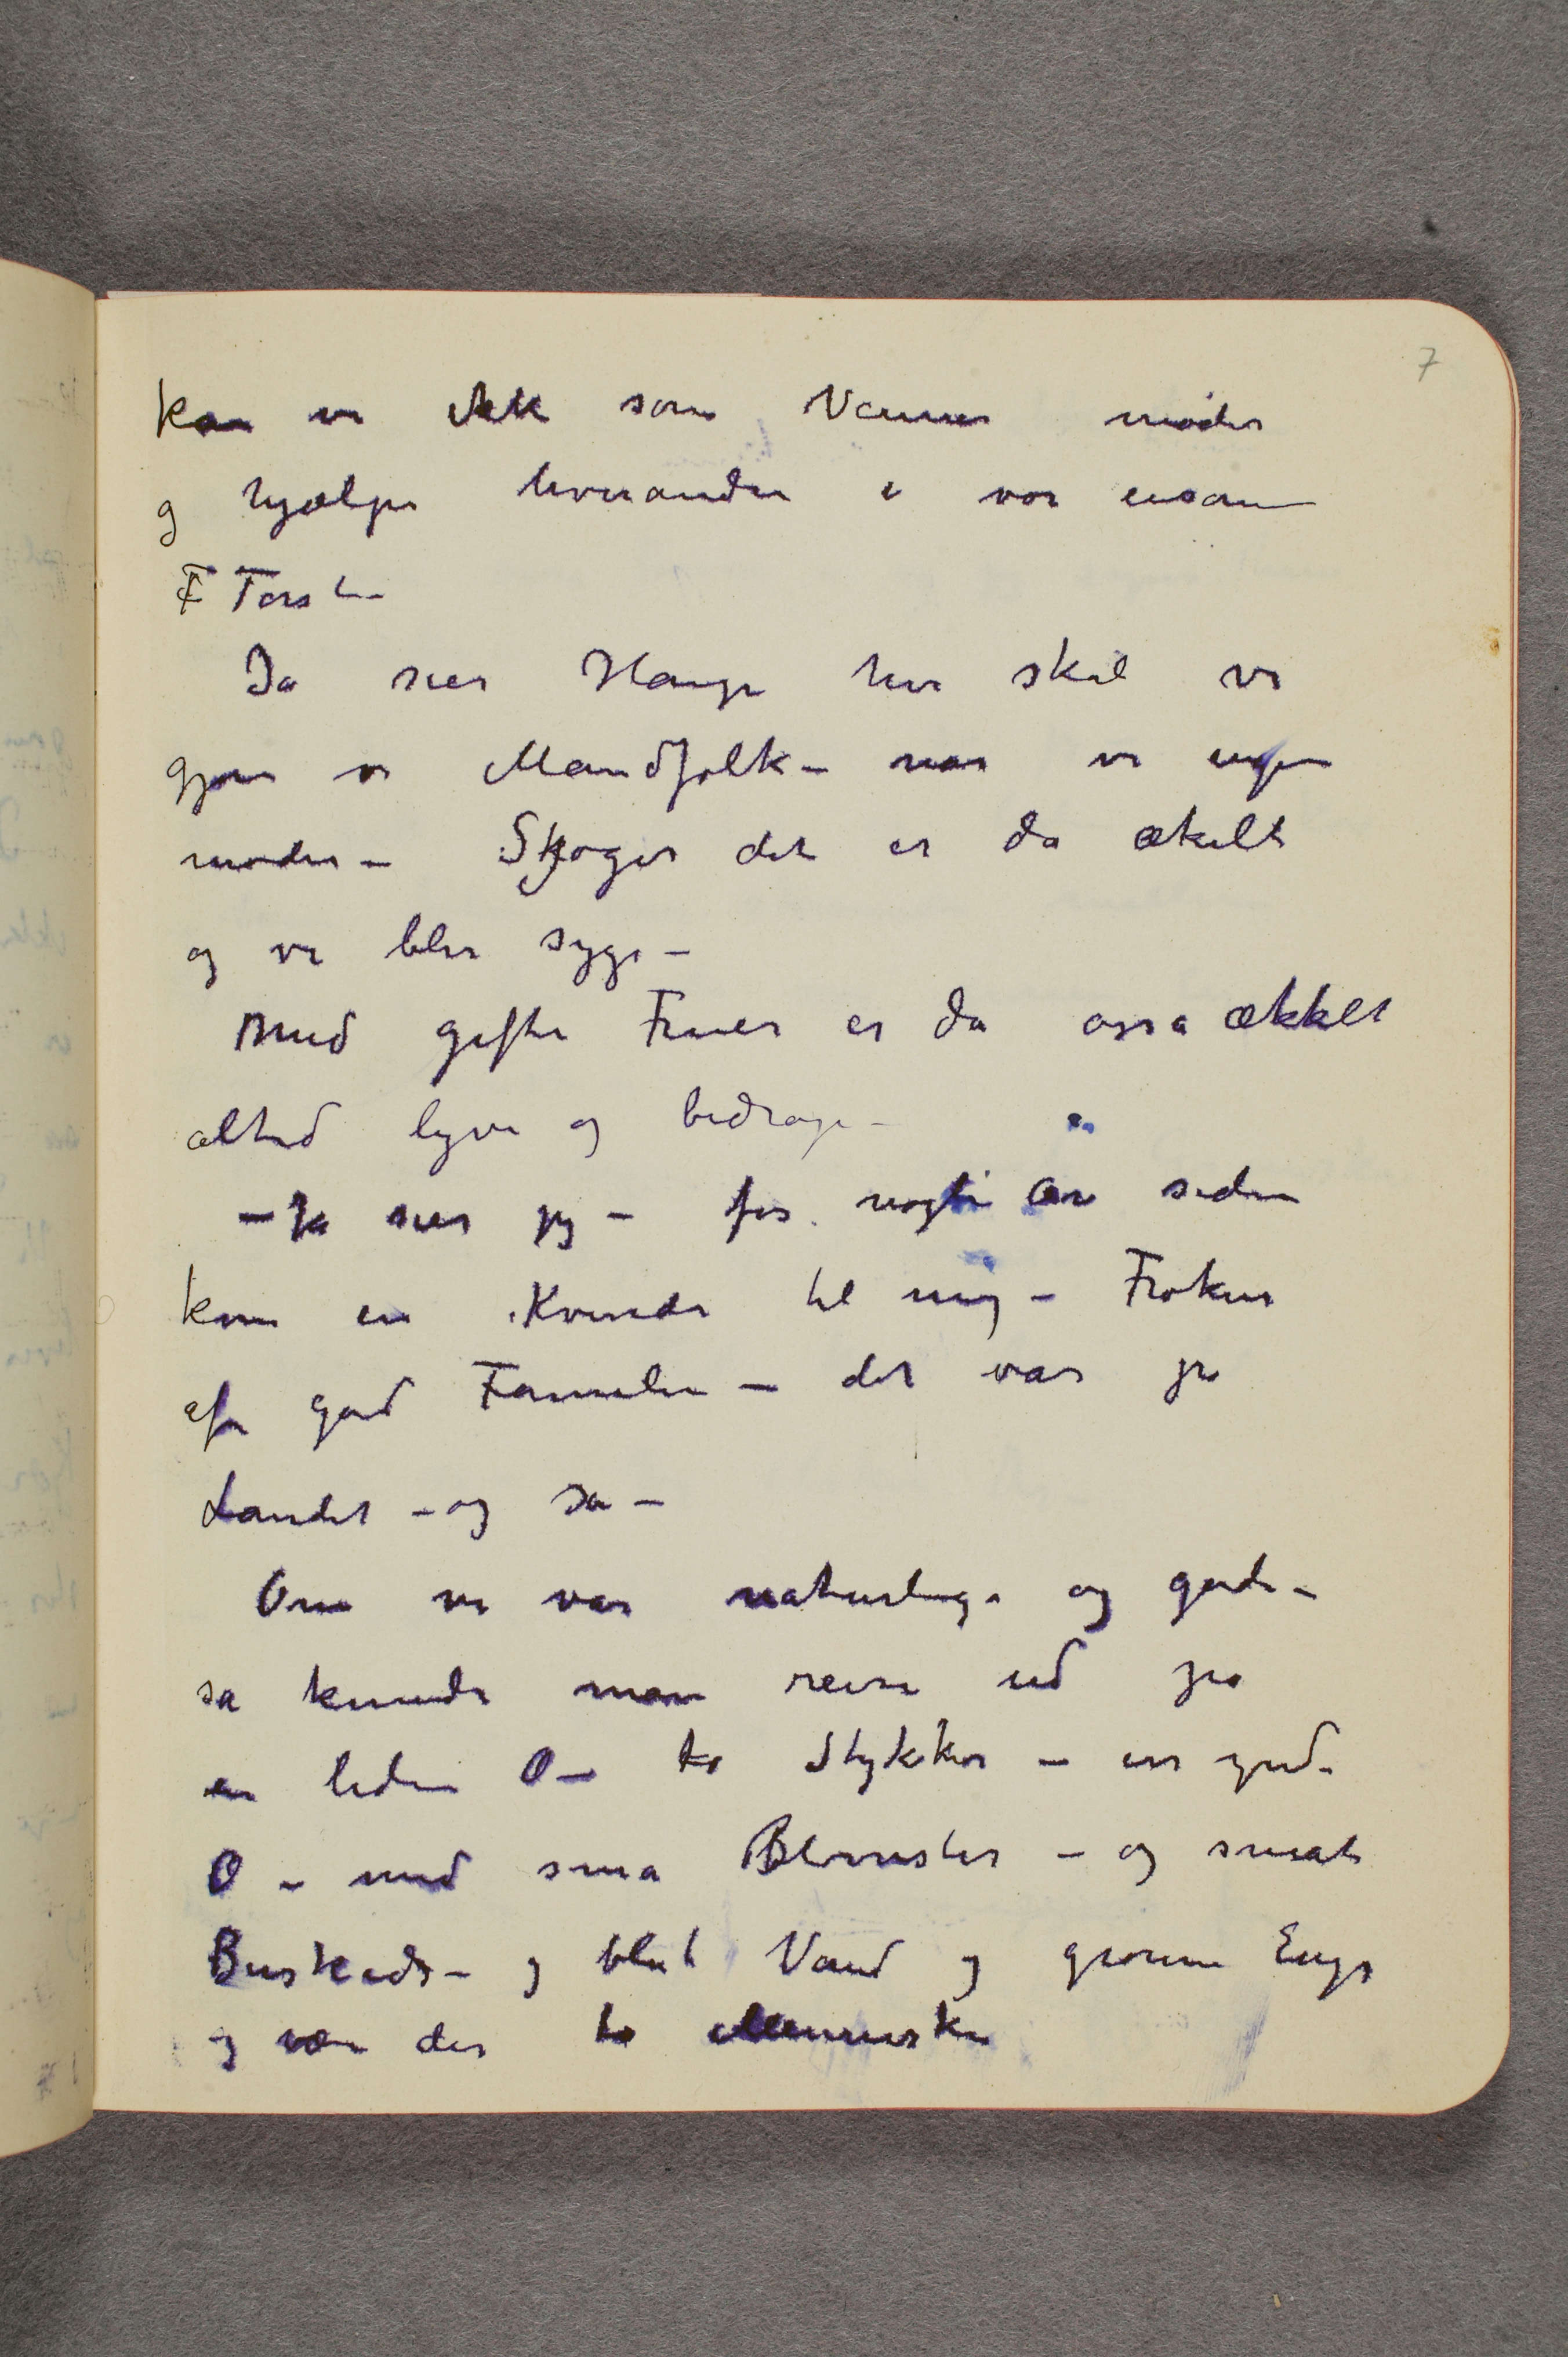 7
kan vi ikke som Venner mødes
og hjælpe hverandre i vor ensomme
F Tørst –
Ja sier Hauge hva skal vi
gjøre vi Mandfolk – når vi ingen
møder – Skjøger det er da ækelt
og vi blir syge –
Med gifte Fruer er da osså ækkelt
altid lyve og bedrage –
– Ja sier jeg – for nogle år siden
kom en Kvinde til mig – Frøken
af god Familie – det var på
Landet – og så –
Om vi var naturlige og gode –
så kunde man reise ud på
en liden Ø – to Stykker – en grøn
Ø – med små Blomster – og småt
Buskads – og blåt Vand og grønne Enge
og være der to Mennesker